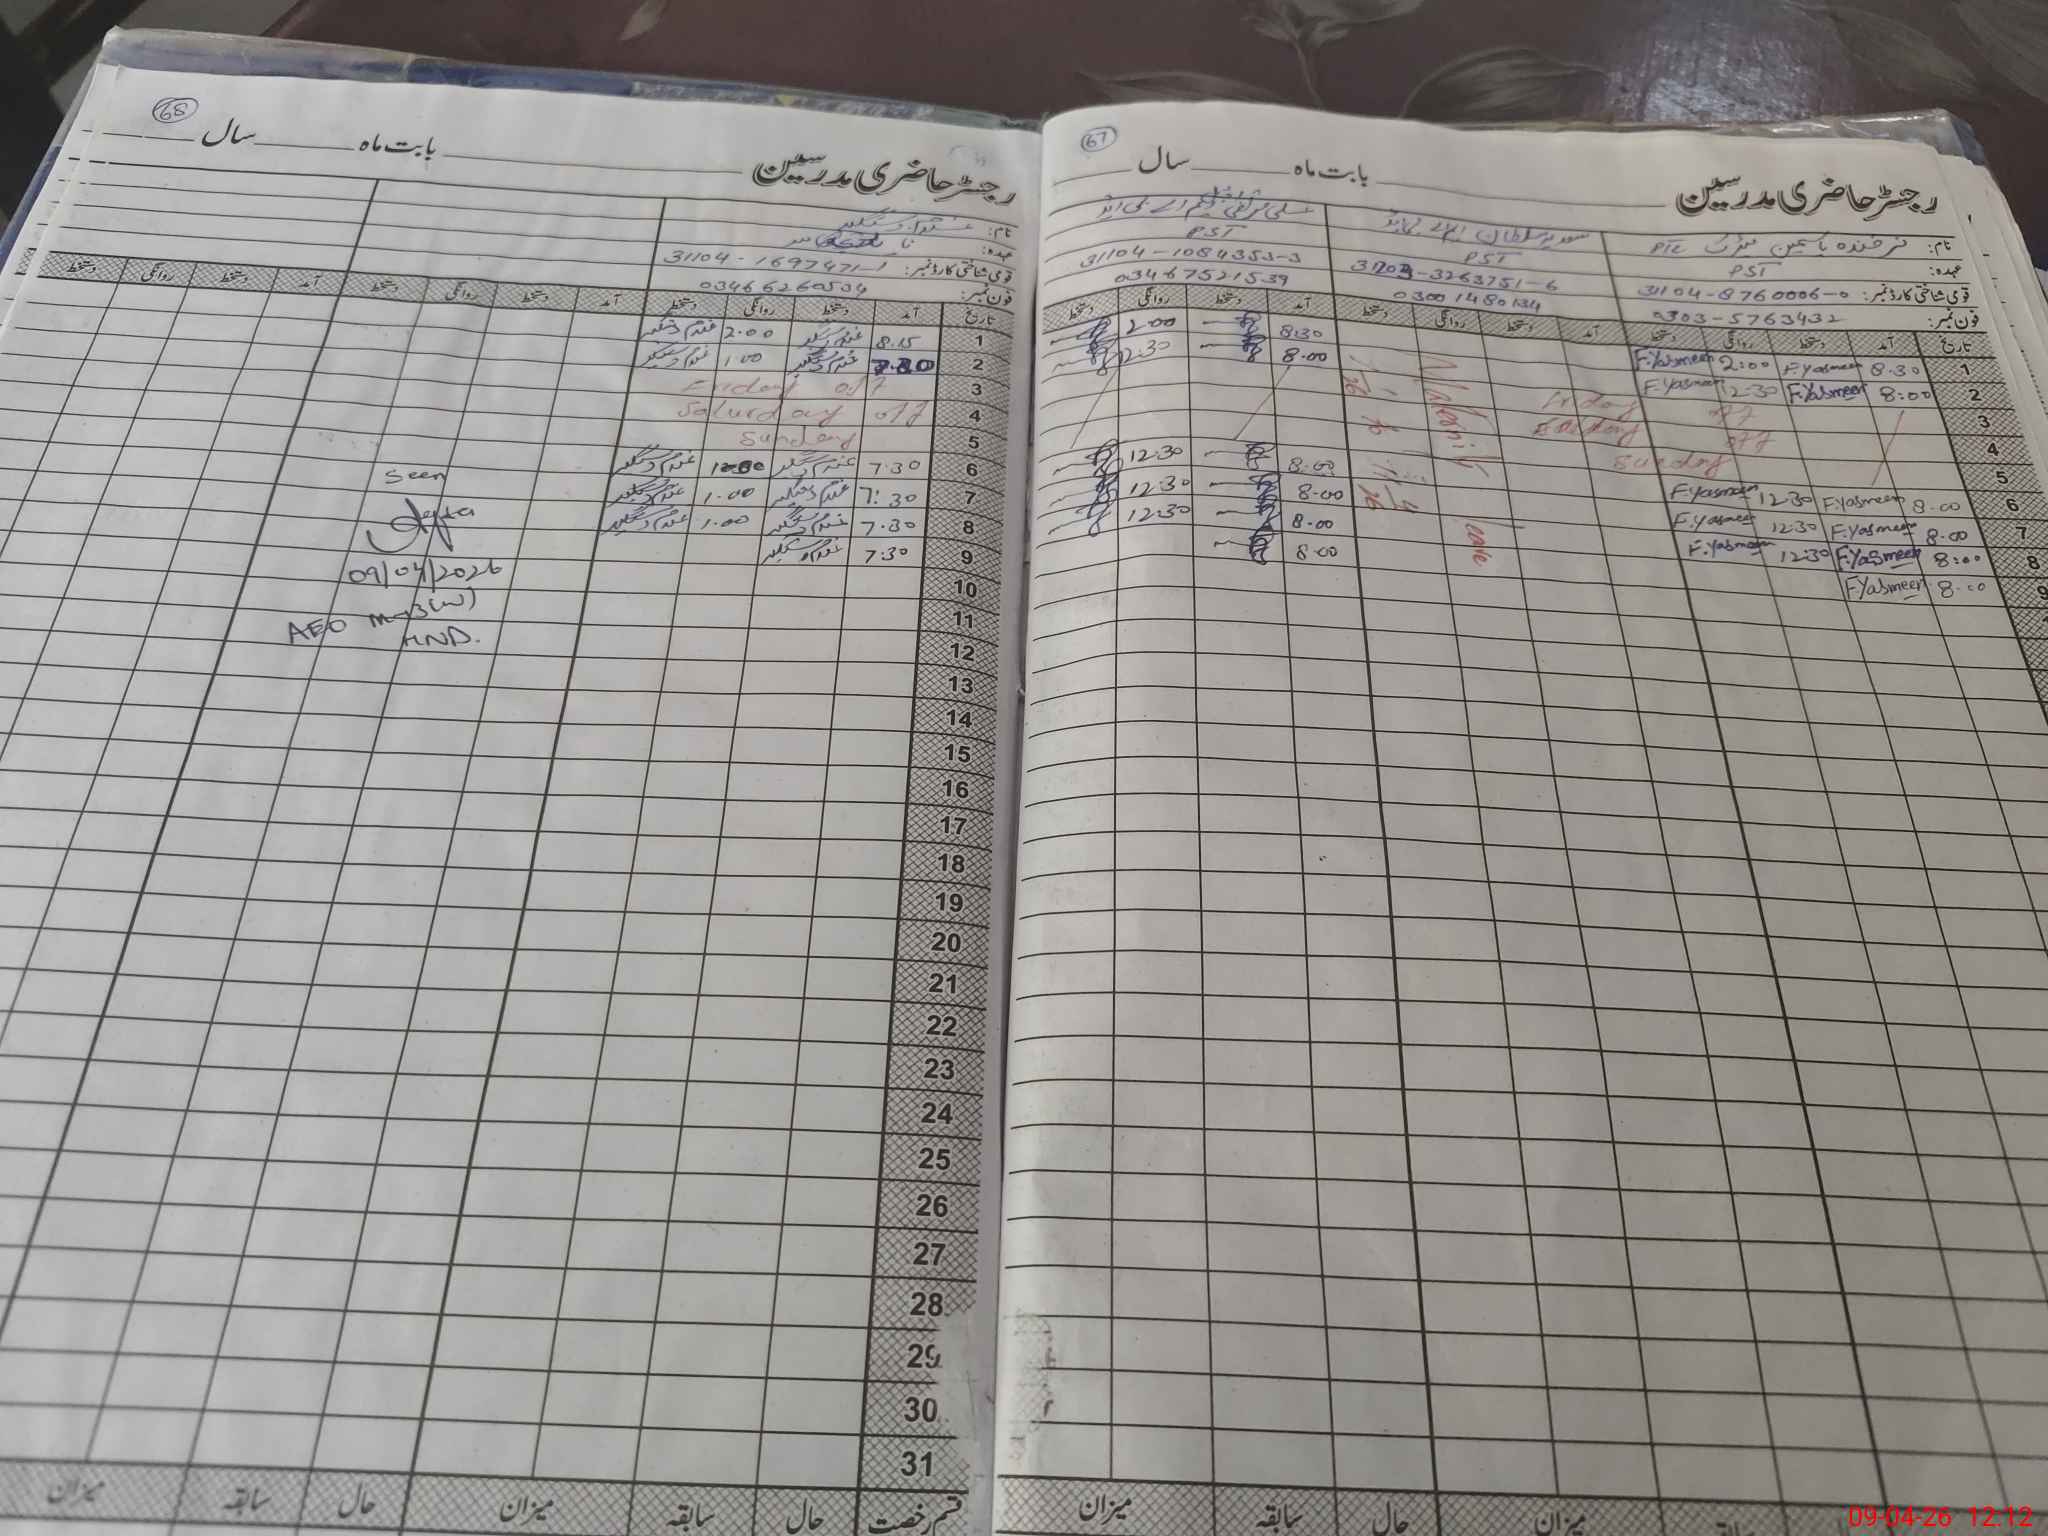 67
رجسٹر حاضری مدرسین بابت ماہ سال
نام: فرخندہ یاسمین میٹرک PTC
عہدہ: PST PST PST
قومی شناختی کارڈ نمبر: 31104-8760006-0 31104-1084353-3
فون نمبر: 0303-5763432 03001480134 03467521539
تاریخ آمد دستخط روانگی دستخط آمد دستخط روانگی دستخط آمد دستخط روانگی دستخط
1 8.30 F.Yasmeen 2:00 F.Yasmeen 8:30 2.00
2 8:00 F.Yasmeen 12:30 F.Yasmeen 8.00 12:30
3 Friday off
4 off
5 Sunday
6 8.00 F.Yasmeen 12:30 F.Yasmeen 8.00 12:30
7 8.00 F.Yasmeen 12:30 F.Yasmeen 8.00 12:30
8 8:00 F.Yasmeen 12:30 F.Yasmeen 8.00 12:30
9 8.00 F.Yasmeen 8.00
Maternity leave
میزان حال سابقہ میزان
68
رجسٹر حاضری مدرسین بابت ماہ سال
نام: غلام دستگیر
عہدہ: نائب قاصد
قومی شناختی کارڈ نمبر: 31104-1697471-1
فون نمبر: 03466260534
تاریخ آمد دستخط روانگی دستخط آمد دستخط روانگی دستخط آمد دستخط روانگی دستخط
1 8.15 غلام دستگیر 2.00 غلام دستگیر
2 غلام دستگیر 1.00 غلام دستگیر
3 Friday off
4 Saturday off
5 Sunday
6 7.30 غلام دستگیر غلام دستگیر
7 7:30 غلام دستگیر 1.00 غلام دستگیر
8 7.30 غلام دستگیر 1.00 غلام دستگیر
9 7:30 غلام دستگیر
10
11
12
13
14
15
16
17
18
19
20
21
22
23
24
25
26
27
28
29
30
31
قسم رخصت حال سابقہ میزان حال سابقہ میزان
Seen
09/04/2026
AEO
HND.
09-04-26 12:12